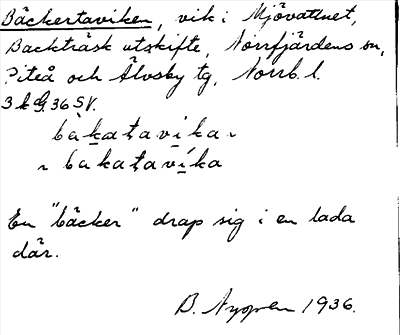 Bäckertaviken, vik i Mjövattnet,
Backträsk utskifte, Norrfjärdens sn,
Piteå och Älvsby tg, Norrb. l.
3 k G 36 SV.
bàkatavika
bakatavíka
En "bäcker" drap sig i en lada
där.
B. Nygren 1936.